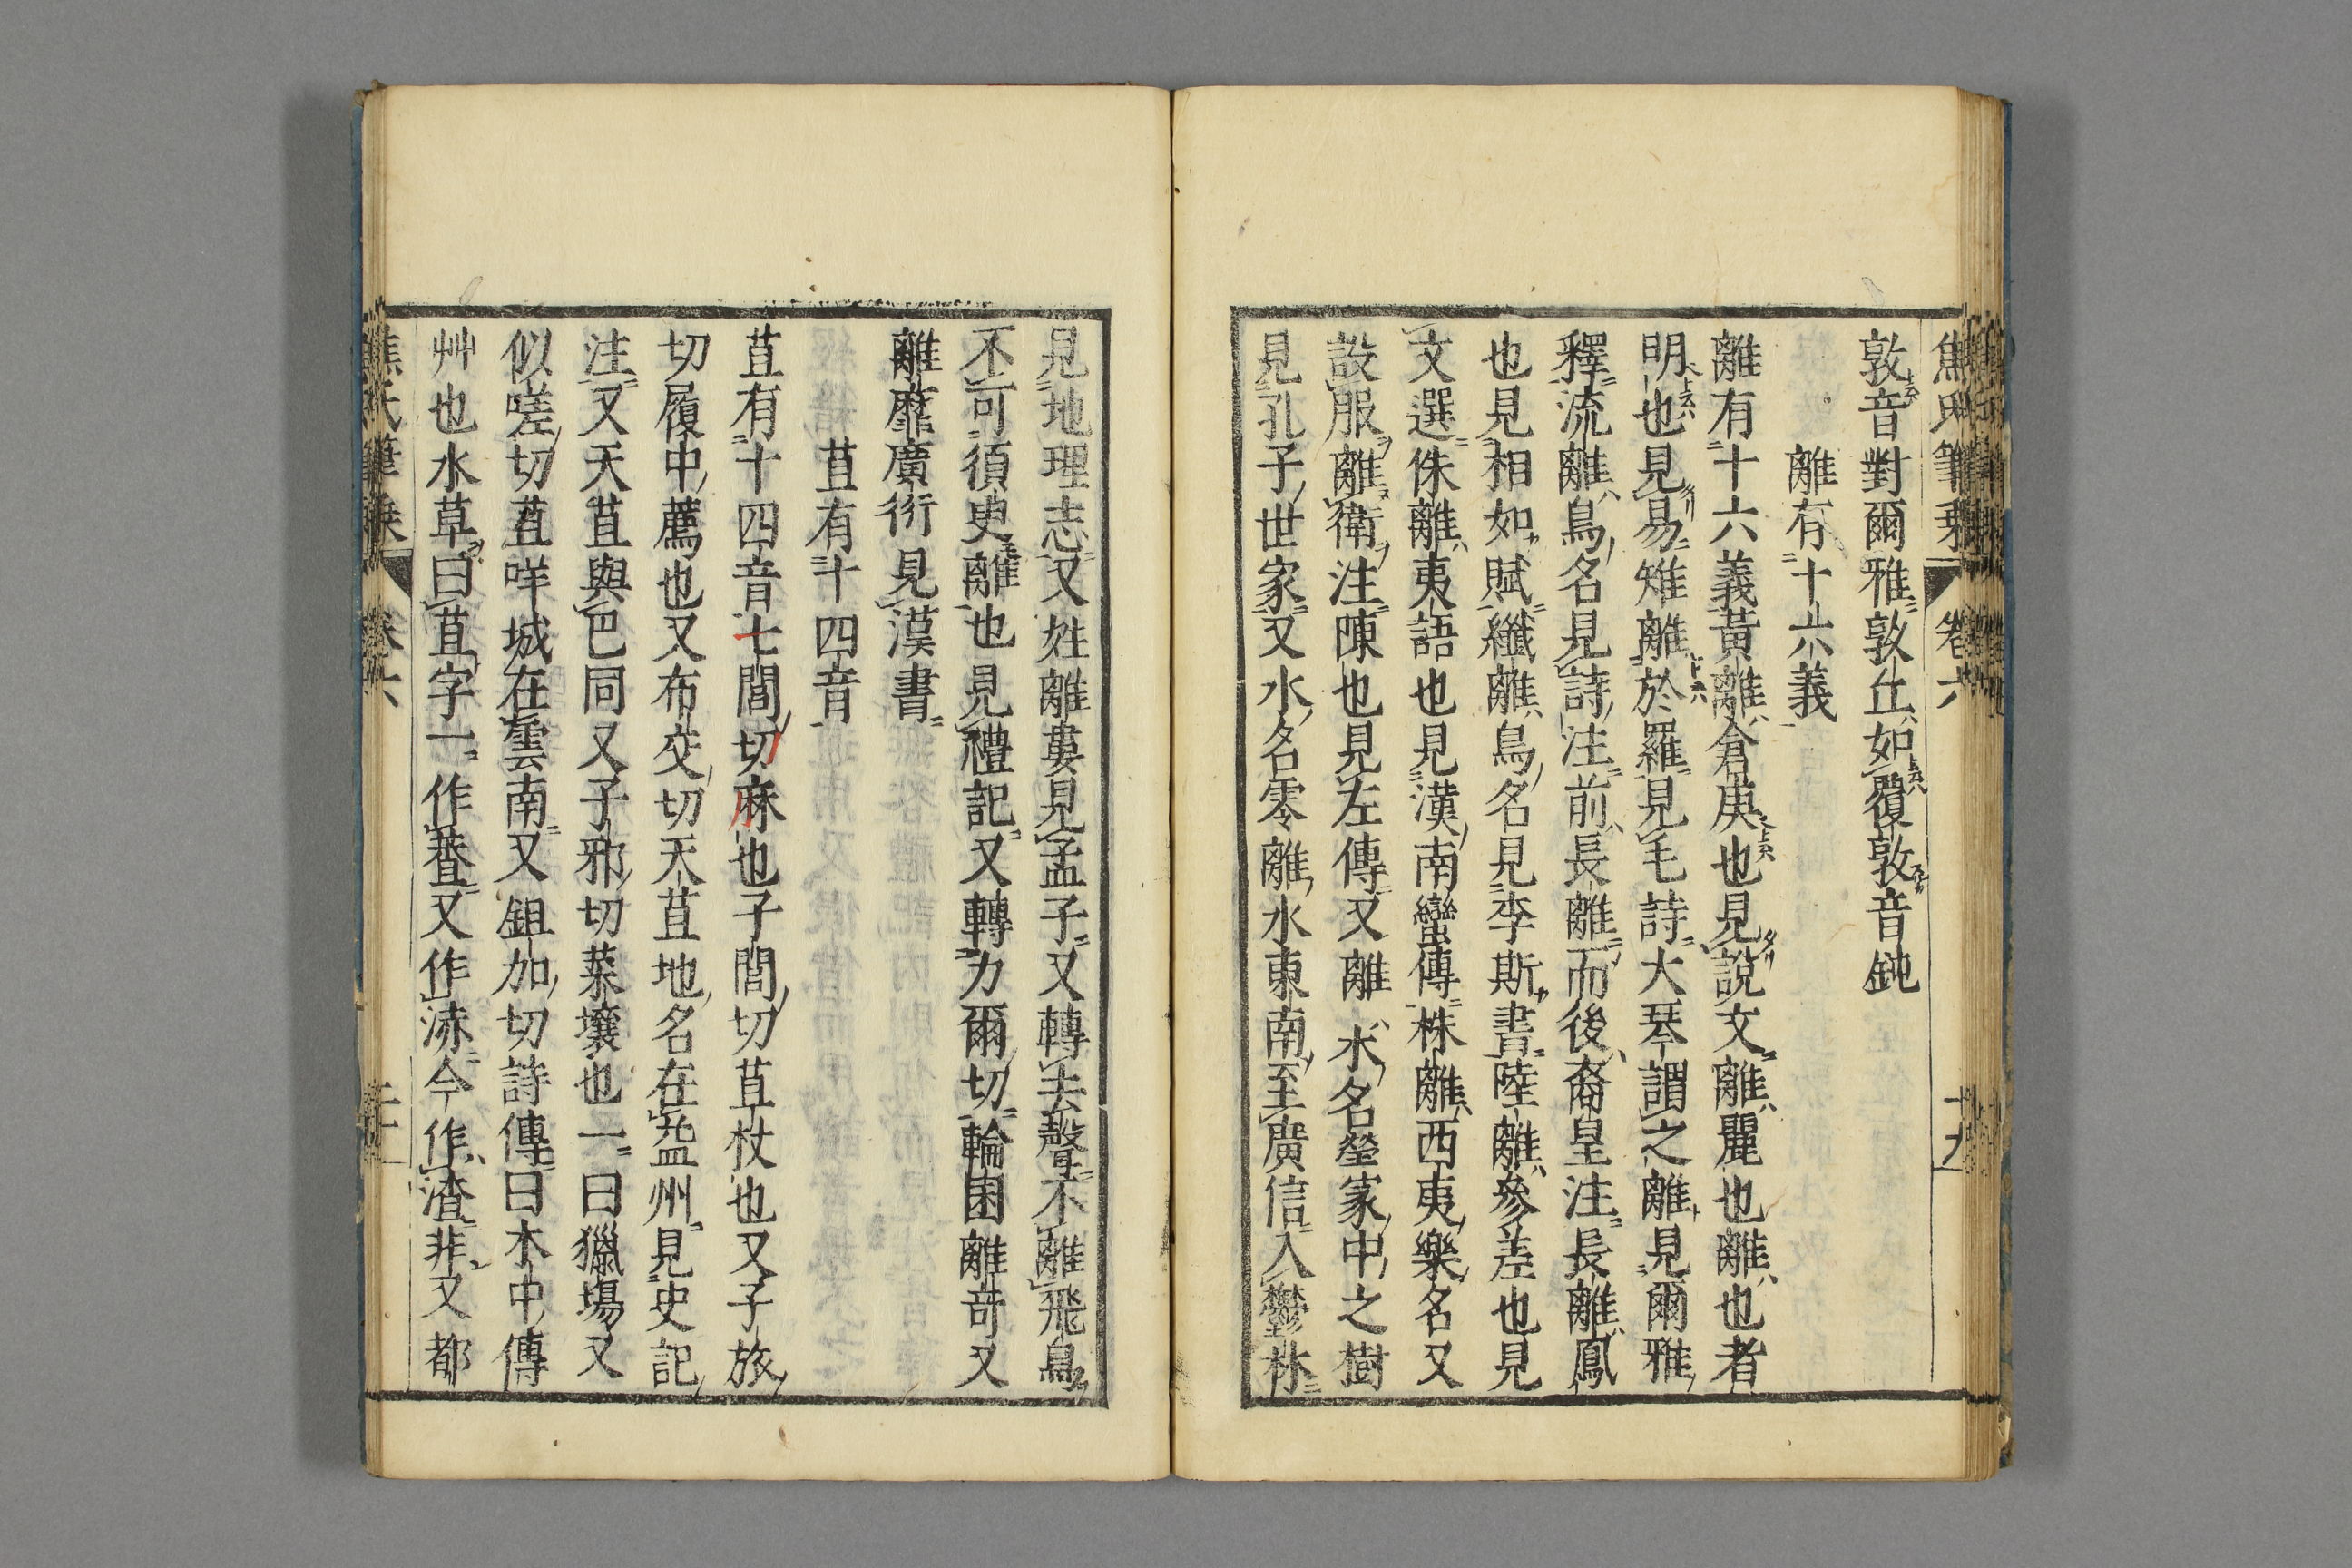 焦氏筆乘 卷六 十九
敦音對爾雅敦丘如覆敦音鈍
離有十六義
離有十六義黃離倉庚也見說文離麗也離也者
明也見易雉離於羅見毛詩大琴謂之離見爾雅
釋流離鳥名見詩注前長離而後裔皇注長離鳳
也見相如賦纖離鳥名見李斯書陸離參差也見
文選侏離夷語也見漢南蠻傳株離西夷樂名又
設服離衛注陳也見左傳又離水名塋冢中之樹
見孔子世家又水名零離水東南至廣信入鬱林
見地理志又姓離婁見孟子又轉去聲不離飛鳥
不可須臾離也見禮記又轉力爾切輪囷離奇又
離靡廣衍見漢書
苴有十四音
苴有十四音七閭切麻也子閭切苴杖也又子旅
切履中薦也又布交切天苴地名在益州見史記
注又天苴與巴同又子邪切菜壤也一曰獵場又
似嗟切苴咩城在雲南又鉏加切詩傳曰木中傳
艸也水草曰苴字一作葅又作泲今作渣非又都
焦氏筆乘 卷六 二十